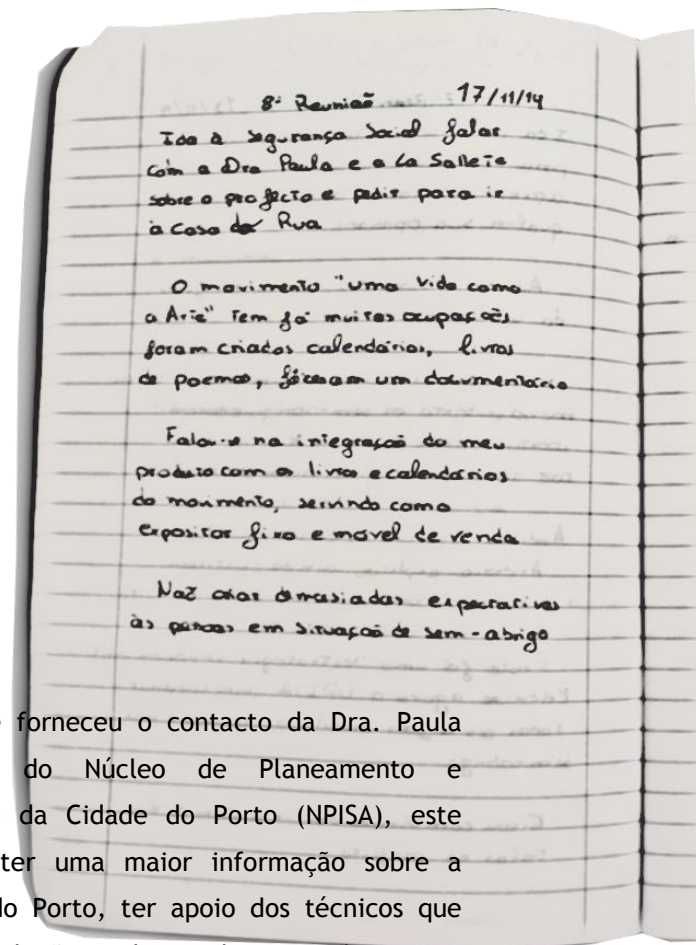 8ª Reunião 17/11/14
Ida à segurança Social falar
com a Dra Paula e a La Sallete
sobre o projecto e pedir para ir
à Casa da Rua
O movimento "uma vida como
a Arte" tem já muitas ocupações
foram criados calendários, livros
de poemas, fizeram um documentário
Falou-se na integração do meu
produto com os livros e calendários
do movimento, servindo como
expositor fixo e móvel de venda
Não criar demasiadas expectativas
às pessoas em situação de sem-abrigo
forneceu o contacto da Dra. Paula
do Núcleo de Planeamento e
da Cidade do Porto (NPISA), este
ter uma maior informação sobre a
do Porto, ter apoio dos técnicos que